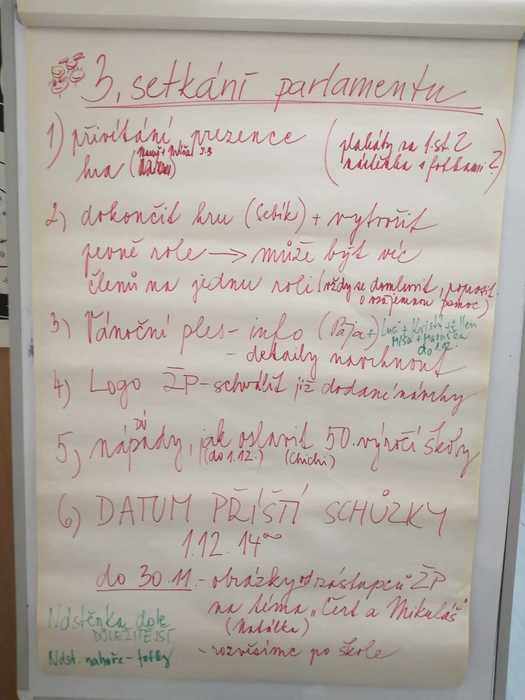 3. setkání parlamentu
1) přivítání, prezence
hra
(plakáty za 1.st?
nástěnka s fotkami?)
2) dokončit hru (Sebík) + vytvořit
pevné role → může být víc
členů na jednu roli (vždy se domluvit, poprosit
o vzájemnou pomoc)
3) Vánoční ples - info (Pája +
do 1.12.
- detaily navrhnout
4) Logo ŽP - schválit již dodané návrhy
DÚ
5) nápady, jak oslavit 50. výročí školy
(do 1.12.) (Chichi)
6) DATUM PŘÍŠTÍ SCHŮZKY
1.12. 14⁰⁰
do 30.11. - obrázky od zástupců ŽP
na téma "Čert a Mikuláš"
(Natálka)
- rozvěsíme po škole
Nástěnka dole
DŮLEŽITĚJŠÍ
Nást. nahoře - fotky